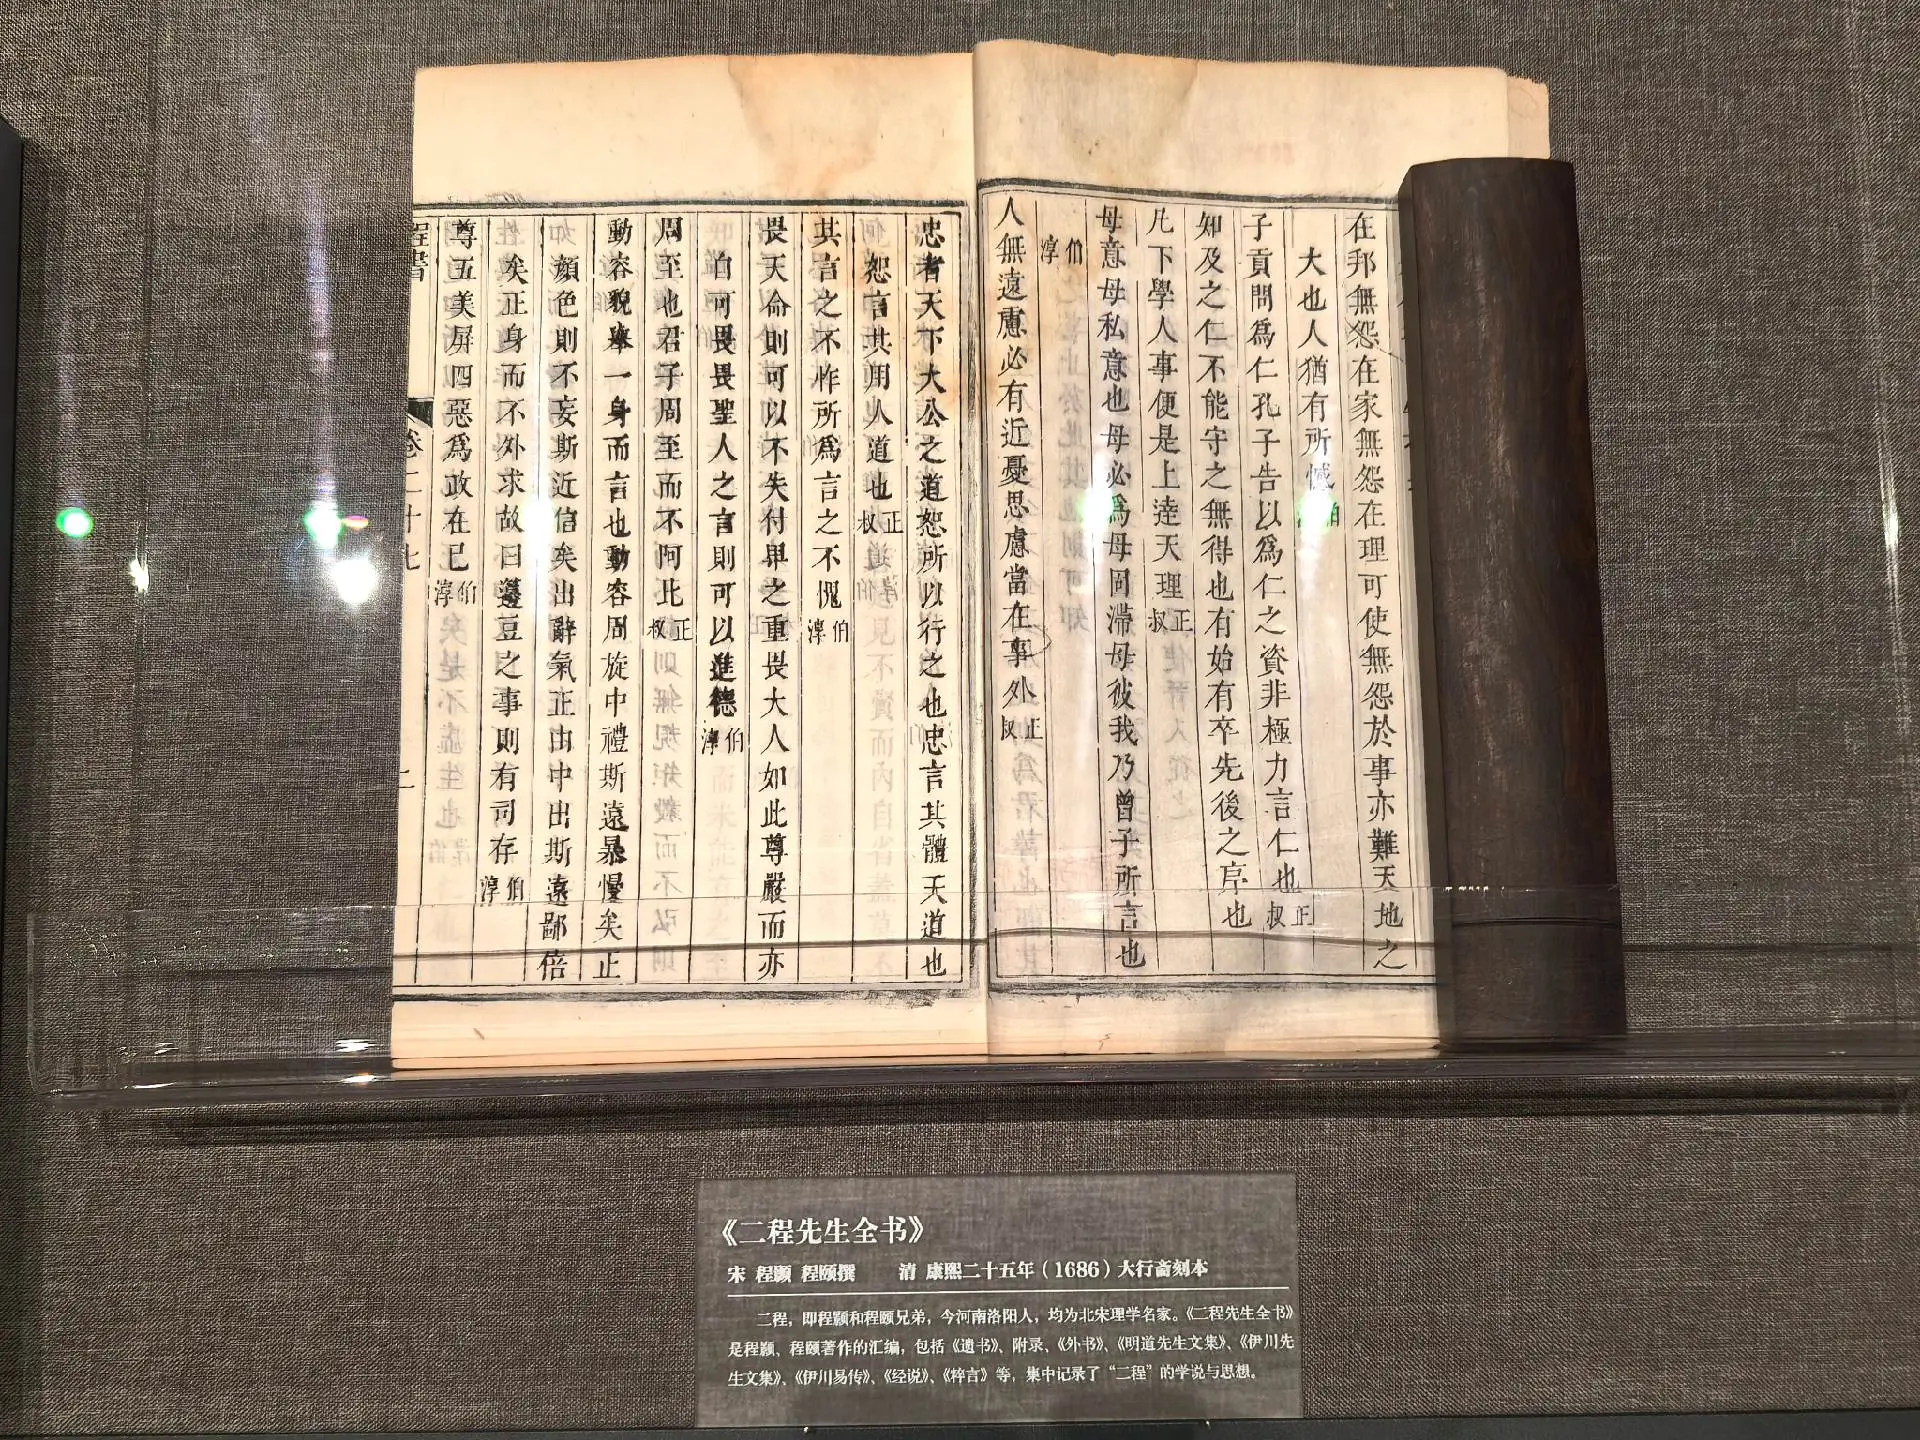 在邦無怨在家無怨在理可使無怨於事亦難天地之
大也人猶有所憾伯
子貢問爲仁孔子告以爲仁之資非極力言仁也正叔
知及之仁不能守之無得也有始有卒先後之序也
凡下學人事便是上達天理正叔
毋意毋私意也毋必爲毋固滯毋彼我乃曾子所言也
伯淳
人無遠慮必有近憂思慮當在事外正叔
忠者天下大公之道恕所以行之也忠言其體天道也
恕言其用人道也正叔
其言之不怍所爲言之不愧伯淳
畏天命則可以不失付畀之重畏大人如此尊嚴而亦
自可畏畏聖人之言則可以進德伯淳
周至也君子周至而不阿比正叔
動容貌舉一身而言也動容周旋中禮斯遠暴慢矣正
顏色則不妄斯近信矣出辭氣正由中出斯遠鄙倍
矣正身而不外求故曰籩豆之事則有司存伯淳
尊五美屏四惡爲政在己伯淳
程書 卷二十七 二
《二程先生全书》
宋 程颢 程颐撰 清 康熙二十五年（1686）大行斋刻本
二程，即程颢和程颐兄弟，今河南洛阳人，均为北宋理学名家。《二程先生全书》
是程颢、程颐著作的汇编，包括《遗书》、附录、《外书》、《明道先生文集》、《伊川先
生文集》、《伊川易传》、《经说》、《粹言》等，集中记录了“二程”的学说与思想。